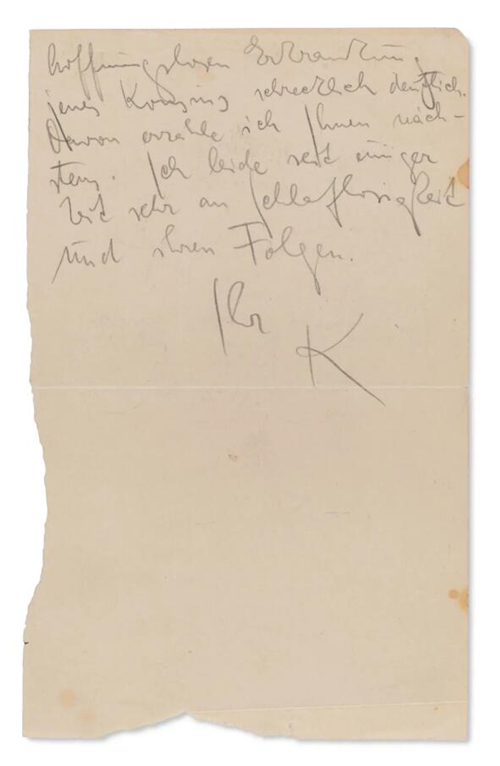 hoffnungslosen Erkrankung
jenes Kousins schrecklich deutlich.
Davon erzähle ich Ihnen näch-
stens. Ich leide seit einiger
Zeit sehr an Schlaflosigkeit
und ihren Folgen.
Ihr
K